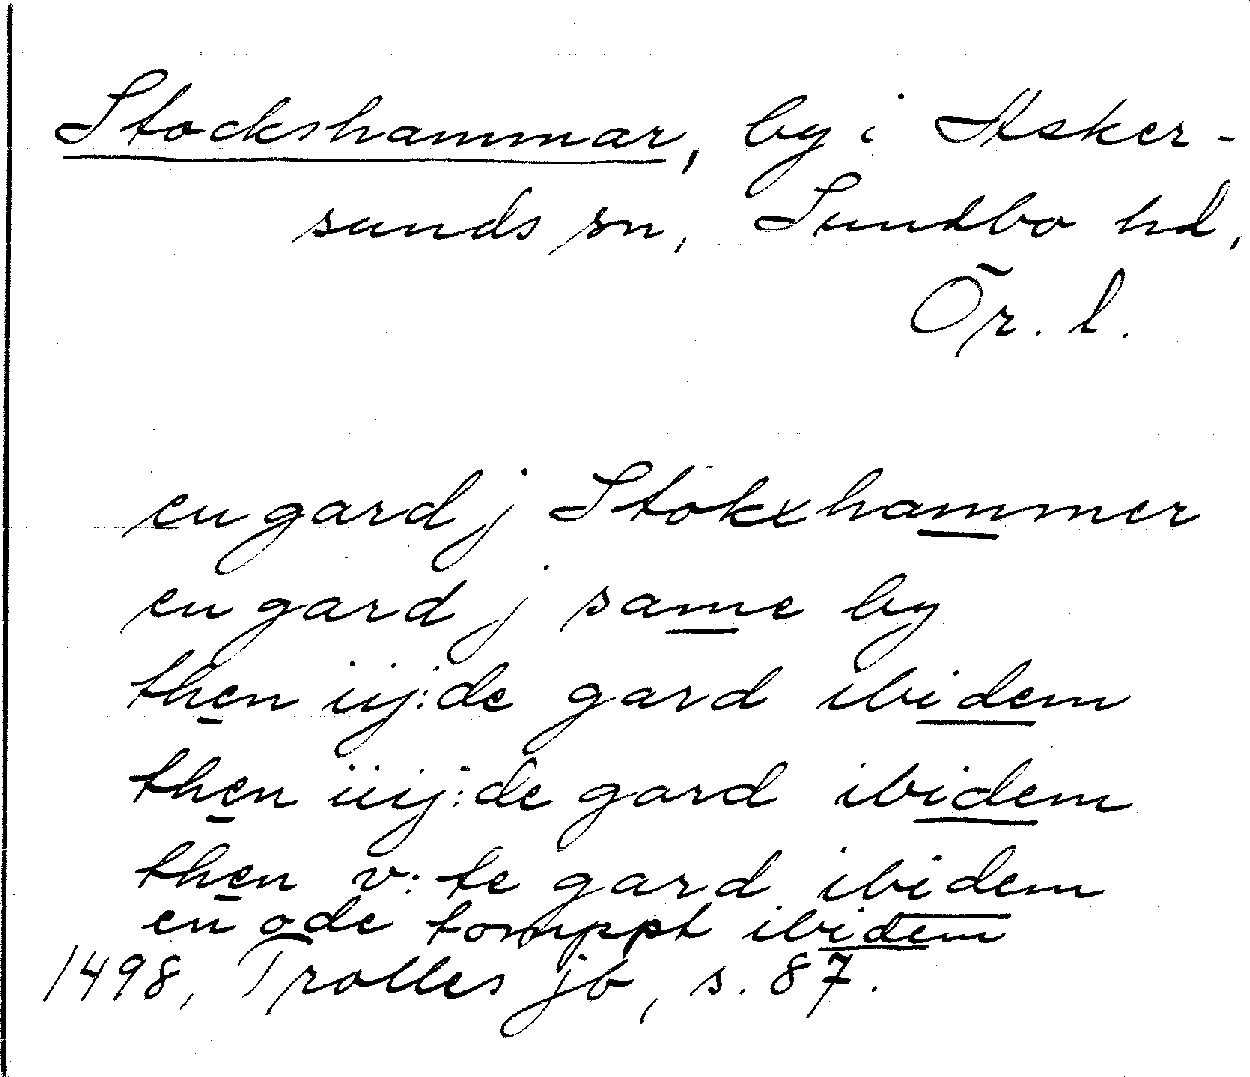 Stockshammar, by i Asker-
sunds sn, Sundbo hd,
Ör. l.
en gard j Stokxhammer
en gard j same by
then iij:de gard ibidem
then iiij:de gard ibidem
then v:te gard ibidem
en ode tomppt ibidem
1498, Trolles jb, s. 87.